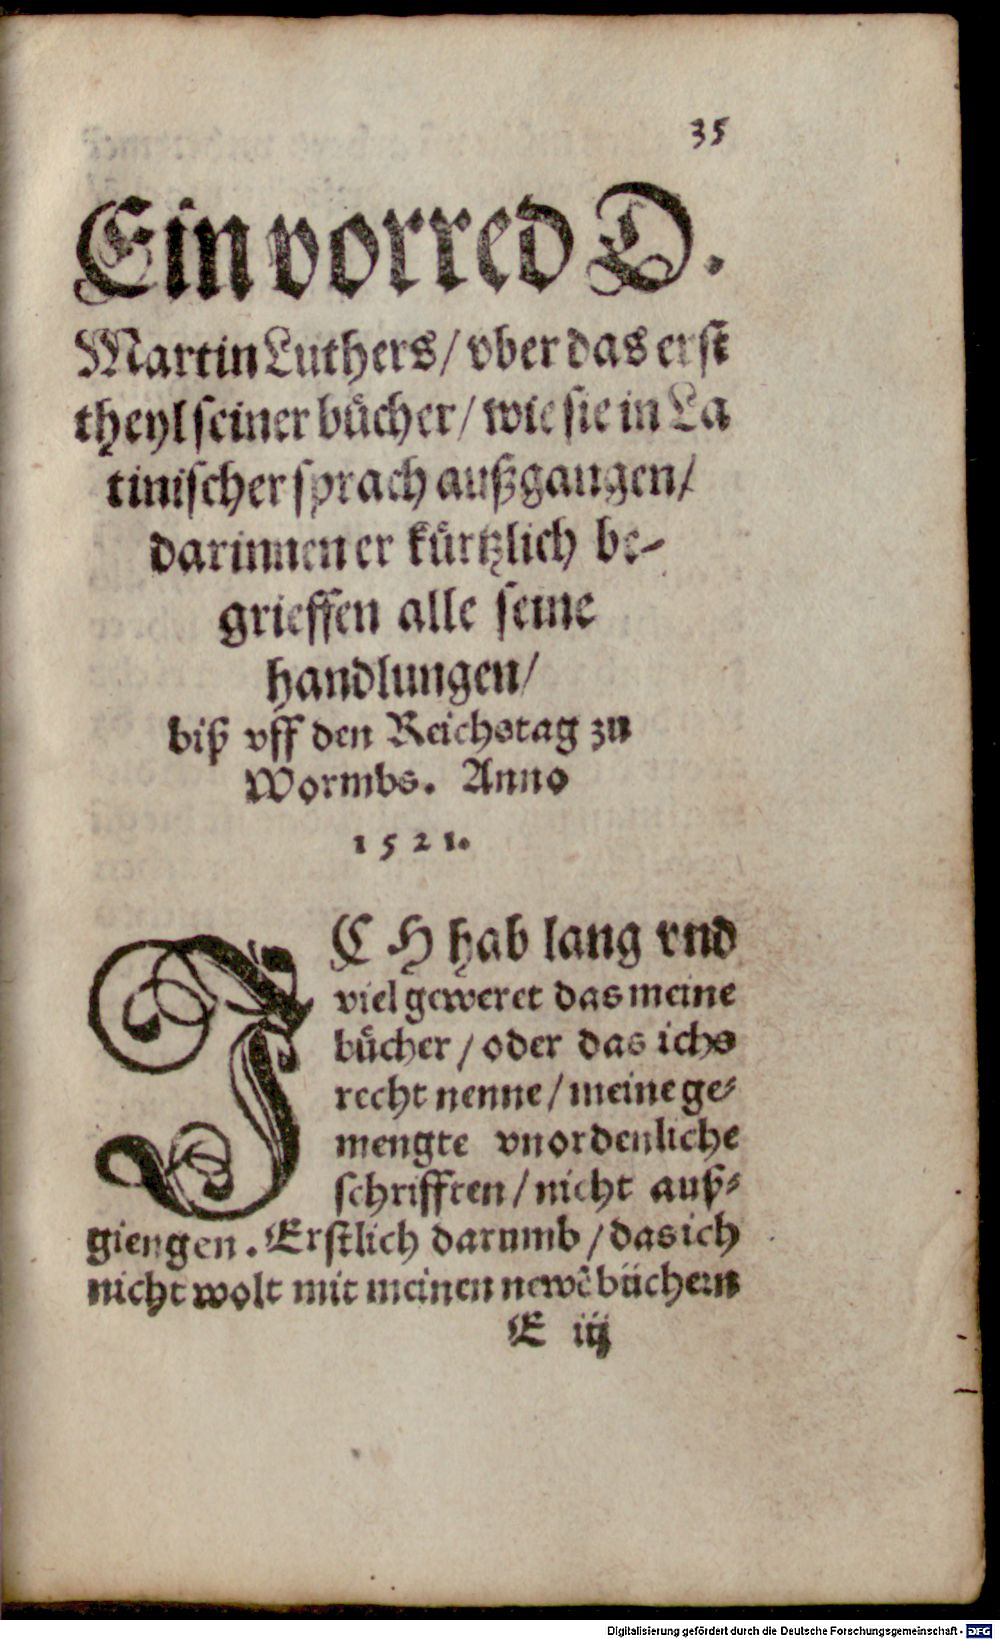 35
Ein vorred D.
Martin Luthers/ vber das erst
theyl seiner bücher/ wie sie in La
tinischer sprach außgangen/
darinnen er kürtzlich be-
grieffen alle seine
handlungen/
biß vff den Reichstag zu
Wormbs. Anno
1521.
ICH hab lang vnd
viel geweret das meine
bücher/ oder das ichs
recht nenne/ meine ge-
mengte vnordenliche
schrifften/ nicht auß-
giengen. Erstlich darumb/ das ich
nicht wolt mit meinen newē büchern
E iij
Digitalisierung gefördert durch die Deutsche Forschungsgemeinschaft - DFG